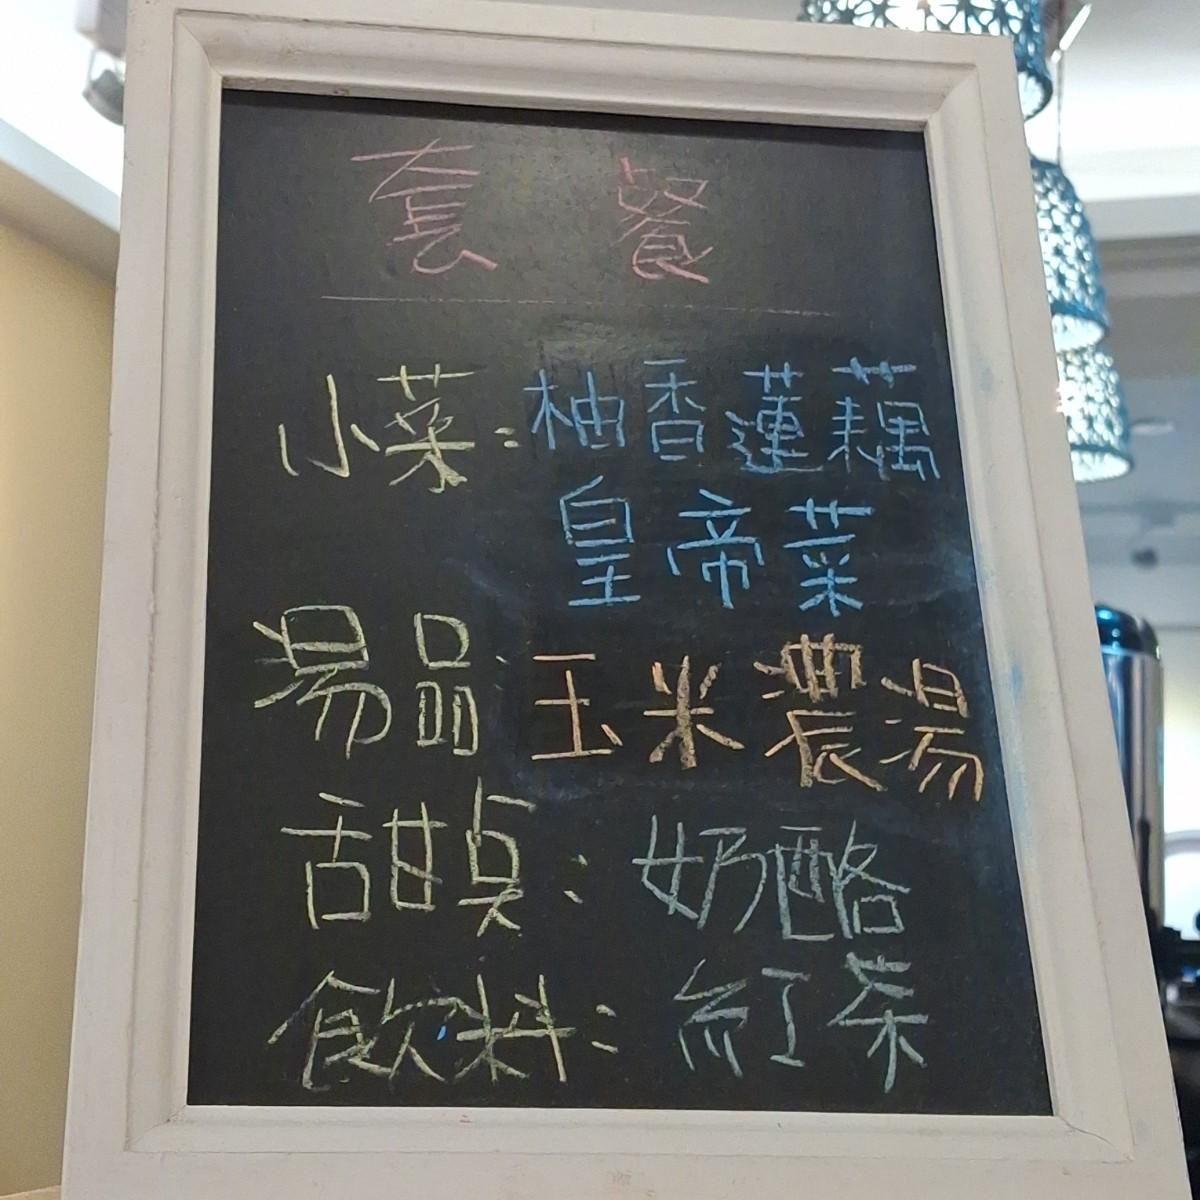 套 餐
小菜：柚香蓮藕
皇帝菜
湯品：玉米濃湯
甜点：奶酪
飲料：紅茶